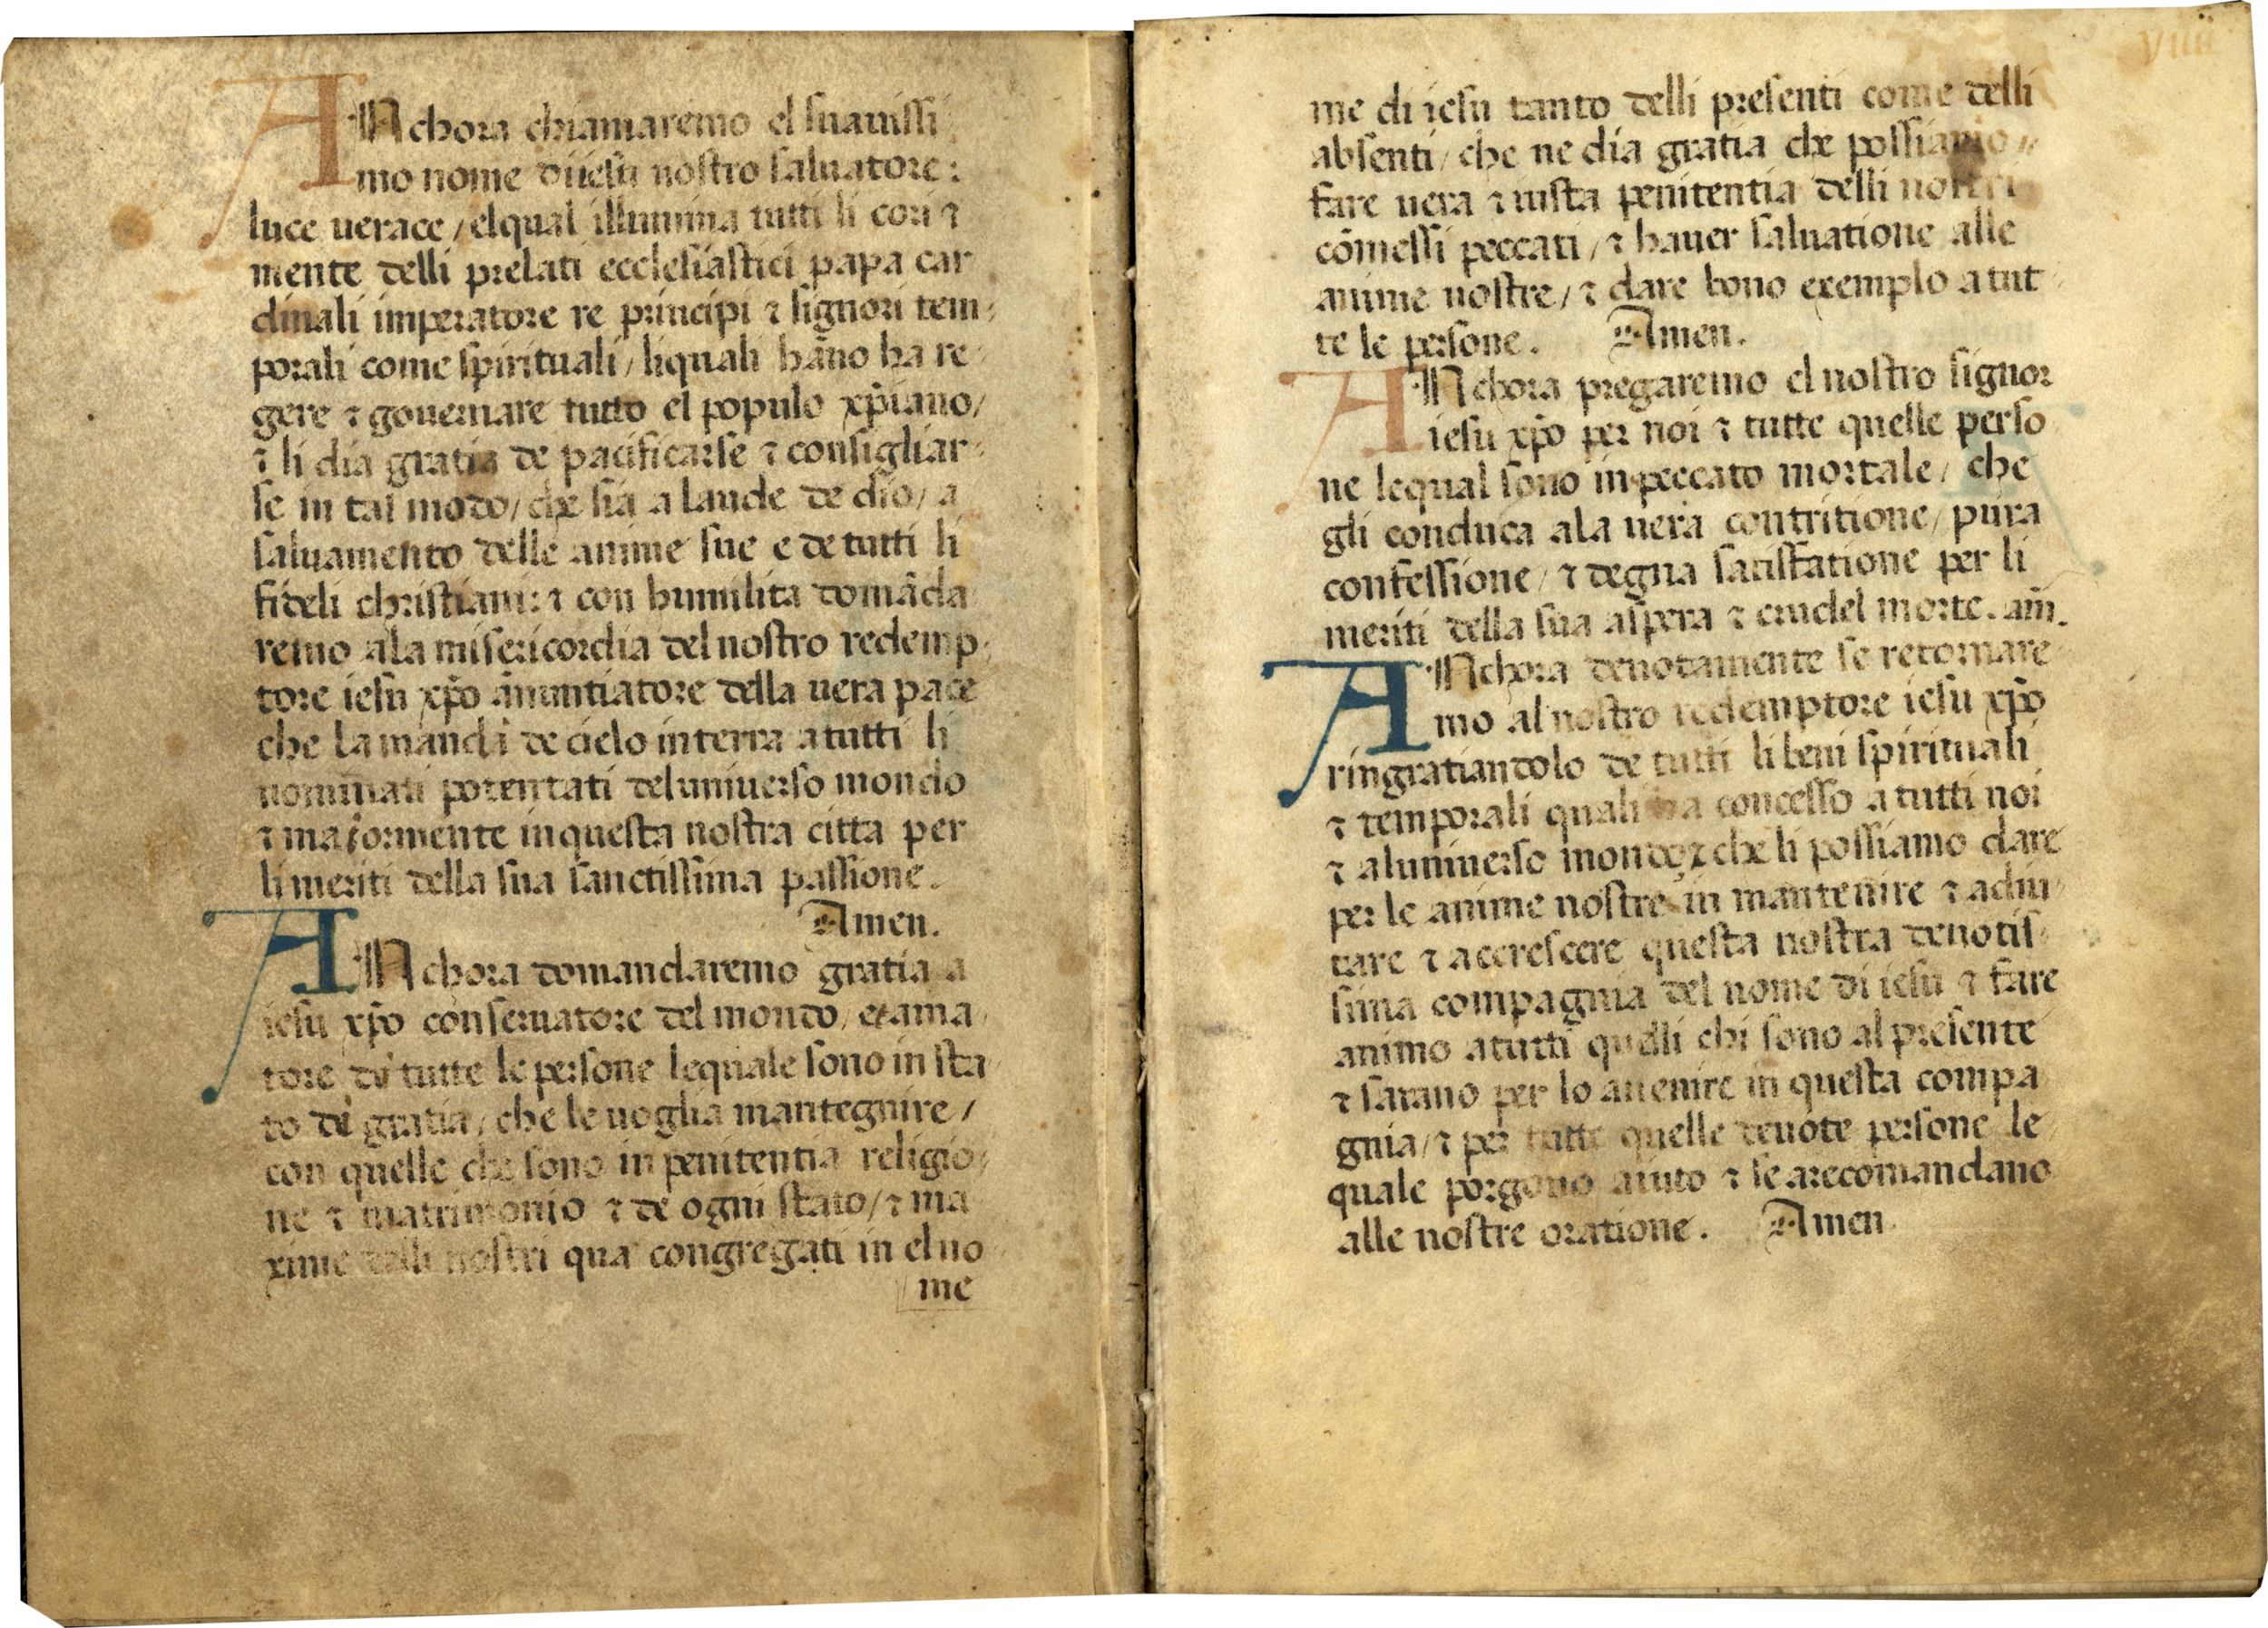 ANchora chiamaremo el suauissi
mo nome di iesu nostro saluatore:
luce uerace / elqual illumina tutti li cori ⁊
mente delli prelati ecclesiastici papa car
dinali imperatore re principi ⁊ signori tem
porali come spirituali / liquali hāno ha re
gere ⁊ gouernare tutto el populo xp̄iano /
⁊ li dia gratia de pacificarse ⁊ consigliar
se in tal modo / che sia a laude de dio / a
saluamento delle anime sue e de tutti li
fideli christiani: ⁊ con humilita domāda
remo ala misericordia del nostro redemp
tore iesu xp̄o anuntiatore della uera pace
che la mandi de cielo in terra a tutti li
nominati potentati del uniuerso mondo
⁊ maiormente in questa nostra citta per
li meriti della sua sanctissima passione.
Amen.
ANchora domandaremo gratia a
iesu xp̄o conseruatore del mondo, et ama
tore di tutte le persone lequale sono in sta
to di gratia, che le uoglia mantegnire /
con quelle che sono in penitentia religio
ne ⁊ matrimonio ⁊ de ogni stato / ⁊ ma
xime delli nostri qua congregati in el no
me
viiii
me di iesu tanto delli presenti come delli
absenti / che ne dia gratia che possiamo
fare uera ⁊ iusta penitentia delli nostri
cōmessi peccati / ⁊ hauer saluatione alle
anime nostre / ⁊ dare bono exemplo a tut
te le persone. Amen.
ANchora pregaremo el nostro signor
iesu xp̄o per noi ⁊ tutte quelle perso
ne lequal sono in peccato mortale / che
gli conduca ala uera contritione / pura
confessione / ⁊ degna satisfatione per li
meriti della sua aspera ⁊ crudel morte. am̄.
ANchora deuotamente se retornare
mo al nostro redemptore iesu xp̄o
ringratiandolo de tutti li beni spirituali
⁊ temporali quali ha concesso a tutti noi
⁊ al uniuerso mondo ⁊ che li possiamo dare
per le anime nostre in mantenire ⁊ adiu
tare ⁊ accrescere questa nostra deuotis
sima compagnia del nome di iesu ⁊ fare
animo a tutti quelli chi sono al presente
⁊ sarano per lo auenire in questa compa
gnia / ⁊ per tutte quelle deuote persone le
quale porgono aiuto ⁊ se arecomandano
alle nostre oratione. Amen